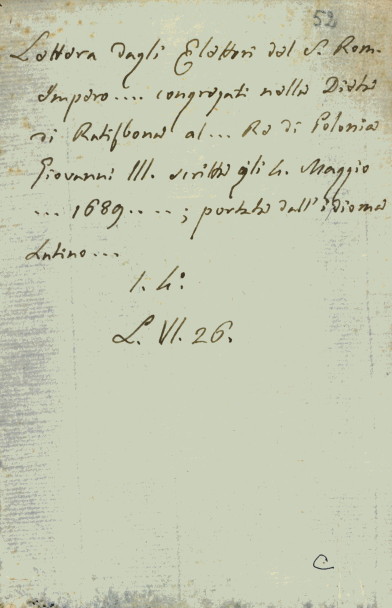 52
Lettera dagli Elettori del S. Rom.
Impero.... congregati nella Dieta
di Ratisbona al... Re di Polonia
Giovanni III. scritta gli 4. Maggio
... 1689....; portata dall'idioma
Latino...
1. 4°
L. VI. 26.
C